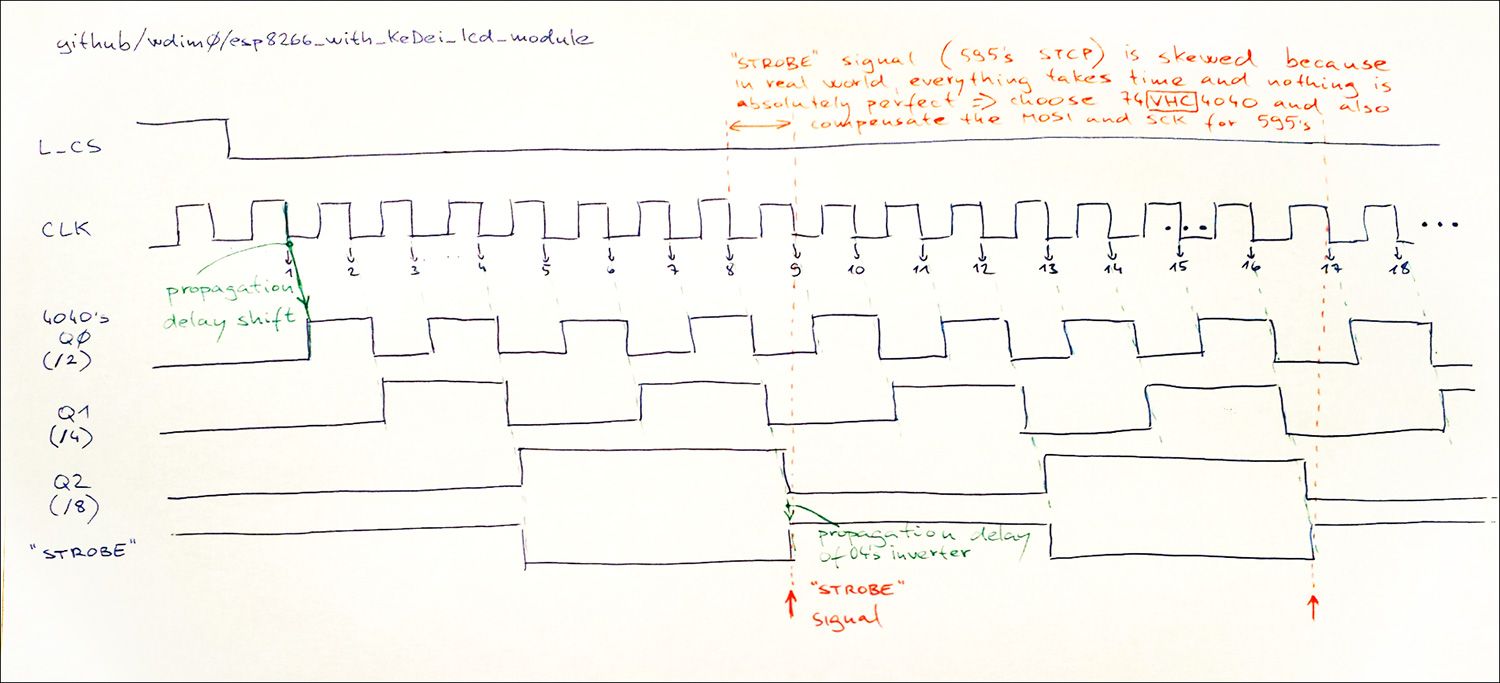 github/wdim0/esp8266_with_KeDei_lcd_module
"STROBE" signal (595's STCP) is skewed because
in real world, everything takes time and nothing is
absolutely perfect => choose 74VHC4040 and also
compensate the MOSI and SCK for 595's
L_CS
CLK
...
1 2 3 .. .. 4 5 6 7 8 9 10 11 12 13 14 15 16 17 18
propagation
delay shift
4040's
Q0
(/2)
Q1
(/4)
Q2
(/8)
"STROBE"
propagation delay
of 04's inverter
"STROBE"
signal